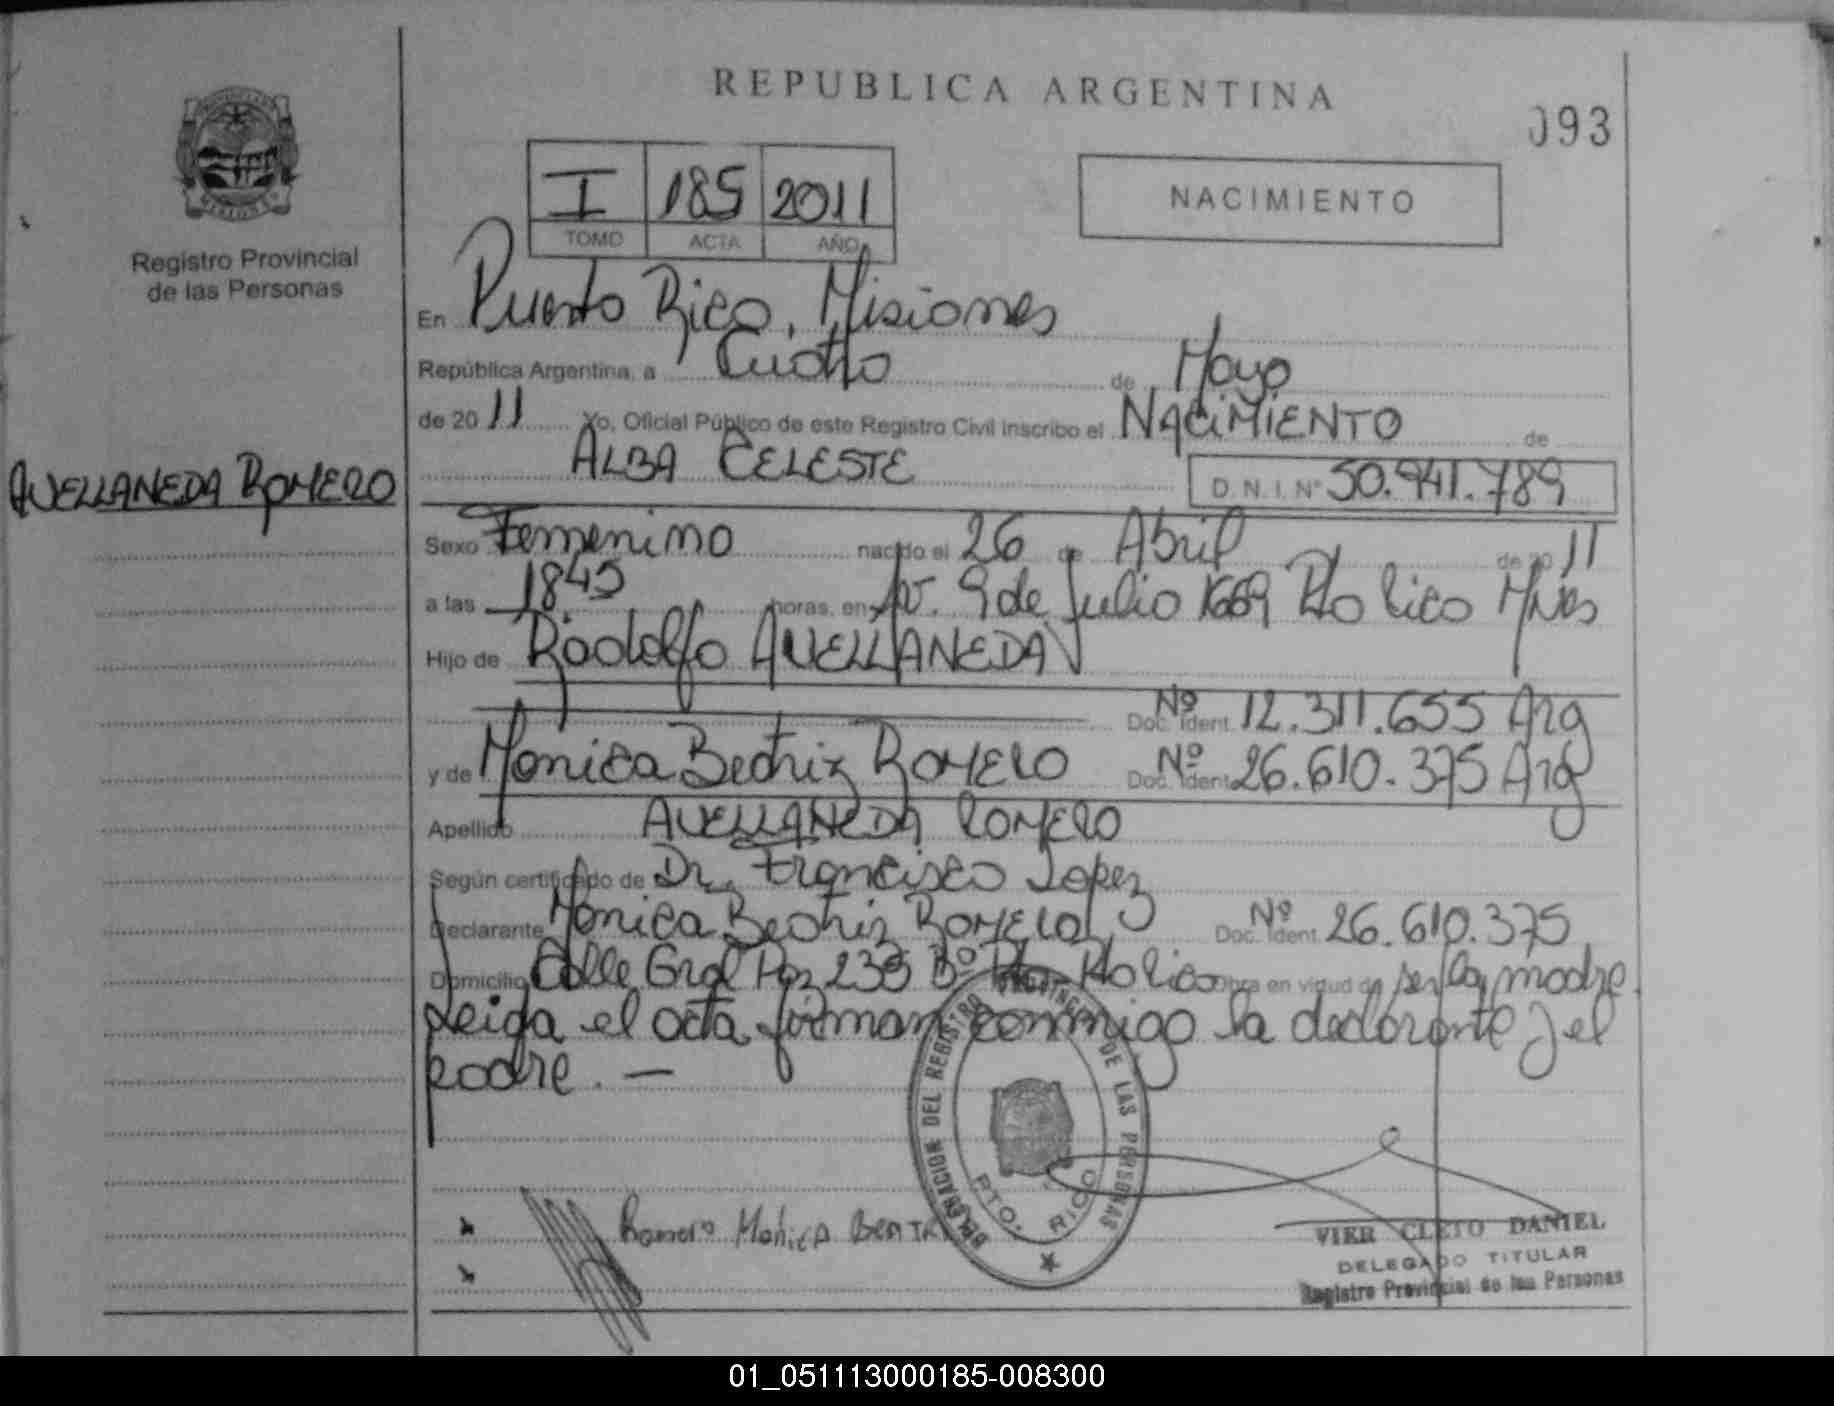 REPUBLICA ARGENTINA
093
I 185 2011
TOMO ACTA AÑO
NACIMIENTO
Registro Provincial
de las Personas
En Puerto Rico, Misiones
República Argentina, a Cuatro de Mayo
de 2011 Yo, Oficial Público de este Registro Civil inscribo el NACIMIENTO de
ALBA CELESTE D.N.I. Nº 50.941.789
AVELLANEDA ROMERO
Sexo Femenino nacido el 26 de Abril de 2011
a las 18:45 horas, en Av. 9 de Julio 1669 Pto Rico Mnes
Hijo de Rodolfo AVELLANEDA
Doc. Ident. Nº 12.311.655 Arg
y de Monica Beatriz ROMERO Doc. Ident. Nº 26.610.375 Arg
Apellido AVELLANEDA ROMERO
Según certificado de Dr. Francisco Lopez
Declarante Monica Beatriz ROMERO Doc. Ident. Nº 26.610.375
Domicilio Calle Gral Paz 235 Bº Pto. Pto Rico Obra en virtud de ser la madre.
Leida el acta firman conmigo la declarante y el
padre. —
DELEGACION DEL REGISTRO PROVINCIAL DE LAS PERSONAS
PTO. RICO
Romero Monica Beatr
VIER CLETO DANIEL
DELEGADO TITULAR
Registro Provincial de las Personas
01_051113000185-008300